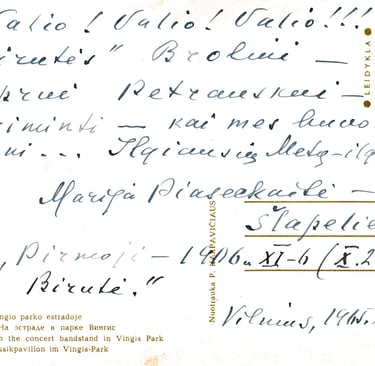 Valio! Valio! Valio!!!
Birutės" Broliui —
Petrauskui —
iminti — kai mes buvo
ni... Ilgiausių Metų-ilg
Marija Piaseckaitė —
Šlapelie
„Pirmoji — 1906 XI-6 (X.2
Birutė."
Vilnius, 1965
ngio parko estradoje
На эстраде в парке Вингис
n the concert bandstand in Vingis Park
usikpavillon im Vingis-Park
Nuotrauka P. KARPAVIČIAUS
LEIDYKLA